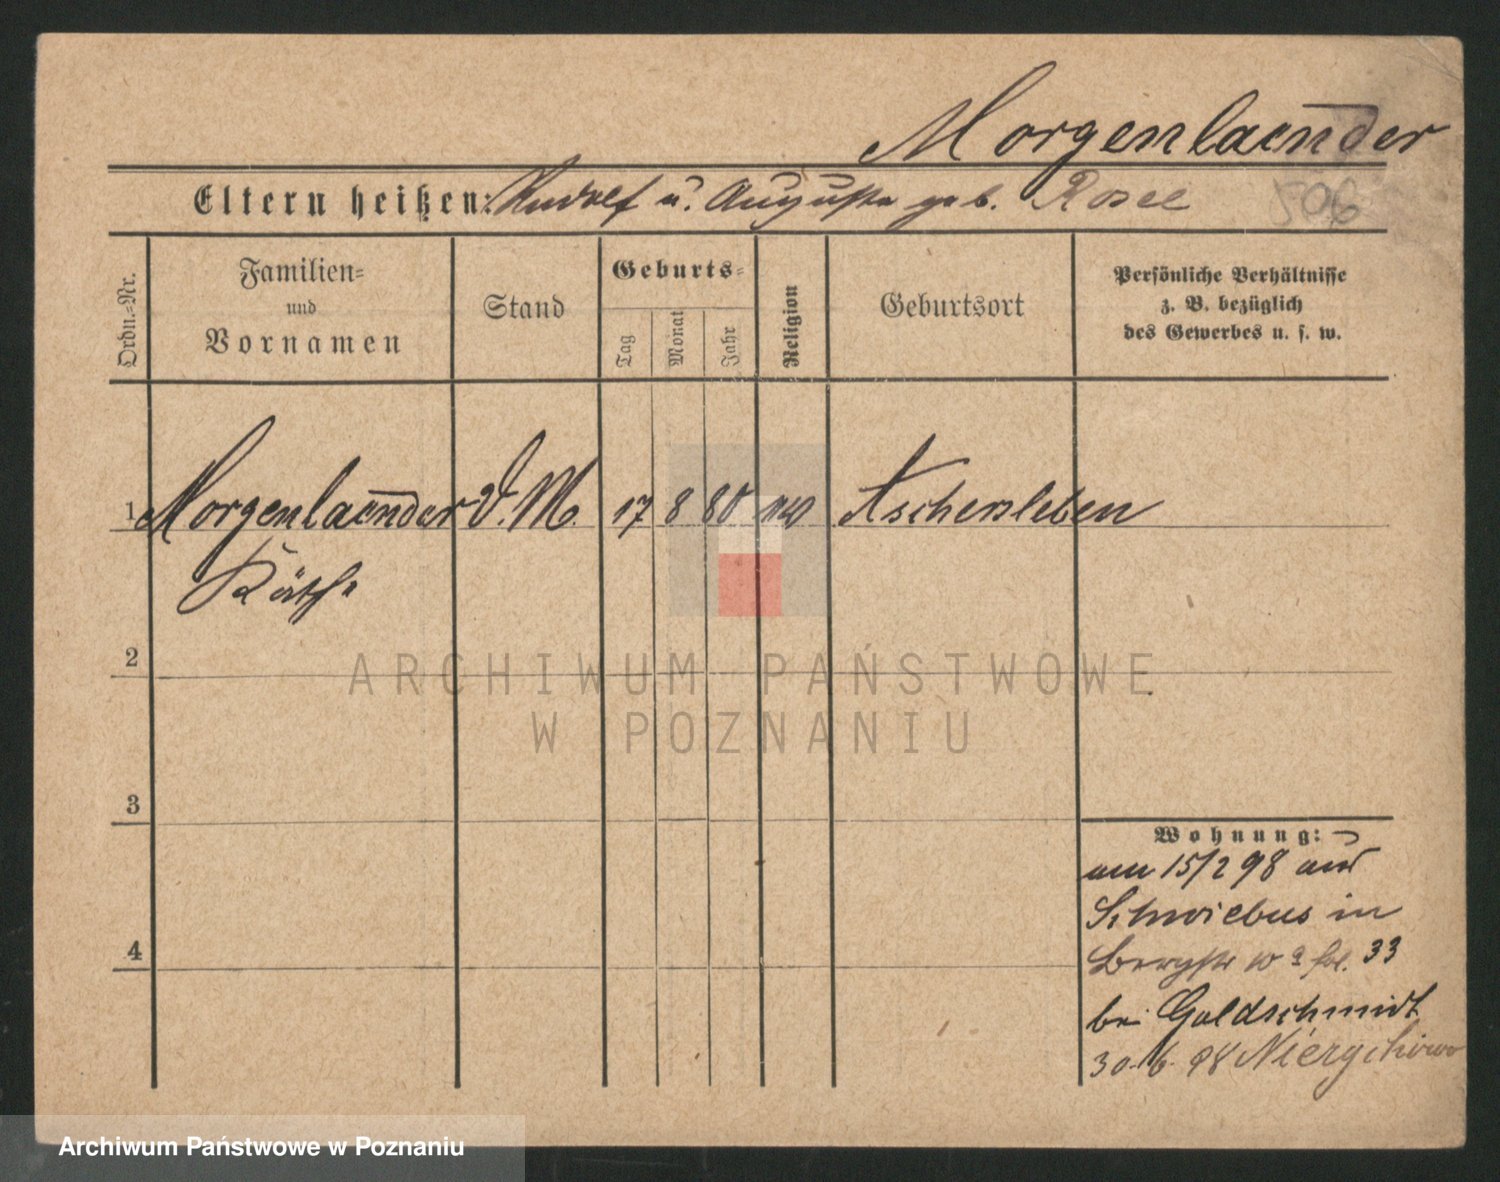 Morgenlaender
Eltern heißen: Rudolf u. Auguste geb. Rosel
506
Ordn.-Nr.
Familien-
und
Vornamen
Stand
Geburts-
Tag
Monat
Jahr
Religion
Geburtsort
Persönliche Verhältnisse
z. B. bezüglich
des Gewerbes u. s. w.
1 Morgenlaender V. M. 17 8 80 Aschersleben
Käthe
2
ARCHIWUM PAŃSTWOWE
W POZNANIU
3
Wohnung:
am 15/2 98 aus
Schwiebus in
4
Bergstr 33
bei Goldschmidt
30. 6. 98
Archiwum Państwowe w Poznaniu